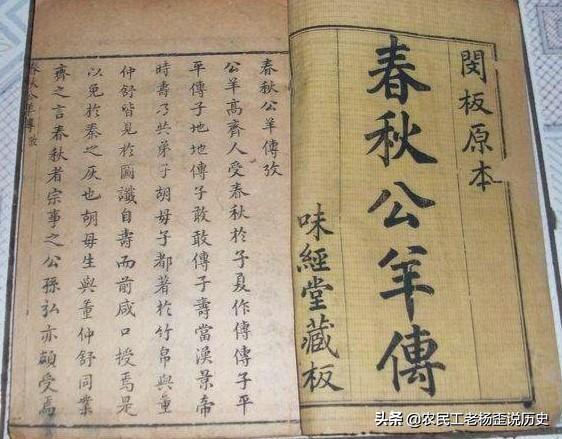 閔板原本
春秋公羊傳
味經堂藏板
春秋公羊傳攷
公羊高齊人受春秋於子夏作傳傳子平
平傳子地地傳子敢敢傳子壽當漢景帝
時壽乃共弟子胡母子都著於竹帛與董
仲舒皆見於圖讖自壽而前咸口授焉是
以免於秦之灰也胡母生與董仲舒同業
齊之言春秋者宗事之公孫弘亦頗受焉
春秋公羊傳
头条 @农民工老杨歪说历史